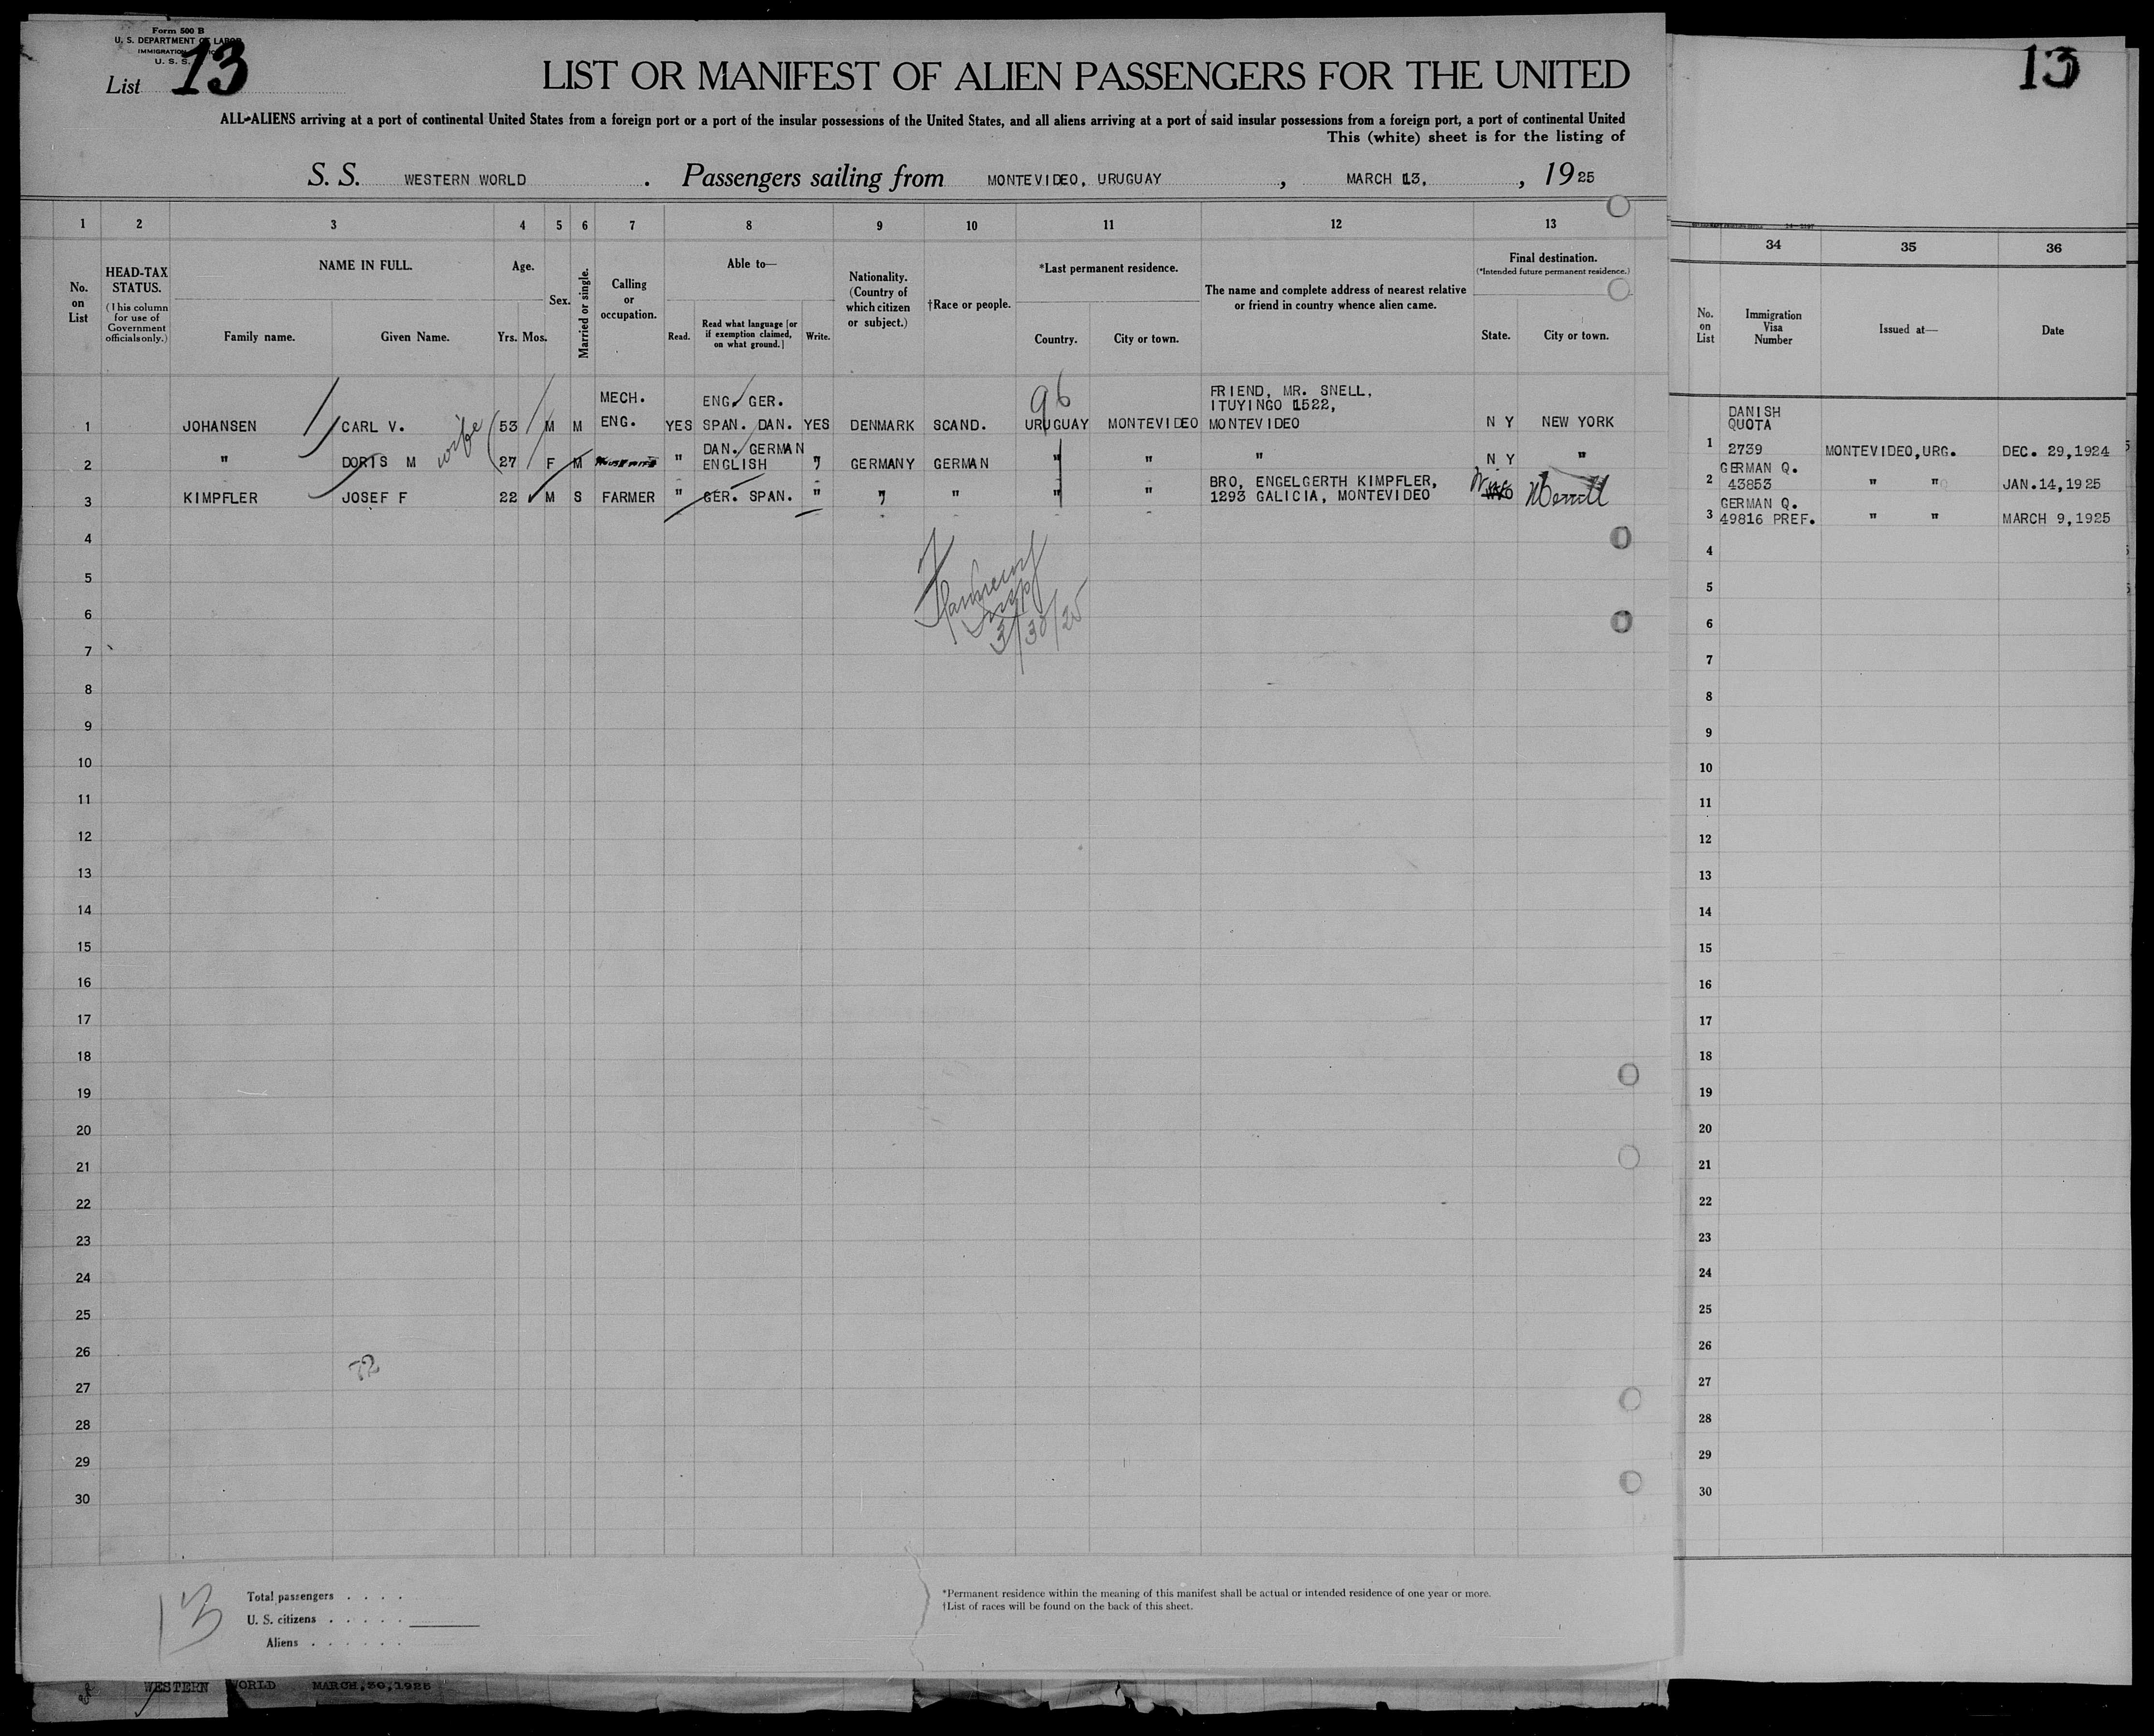 Form 500 B
U. S. DEPARTMENT OF LABOR
IMMIGRATION
U. S. S.
List 13
LIST OR MANIFEST OF ALIEN PASSENGERS FOR THE UNITED
ALL ALIENS arriving at a port of continental United States from a foreign port or a port of the insular possessions of the United States, and all aliens arriving at a port of said insular possessions from a foreign port, a port of continental United
This (white) sheet is for the listing of
S. S. WESTERN WORLD . Passengers sailing from MONTEVIDEO, URUGUAY , MARCH 13, , 1925
13
1 2 3 4 5 6 7 8 9 10 11 12 13
34 35 36
No. on List
HEAD-TAX STATUS.
(This column for use of Government officials only.)
NAME IN FULL.
Family name. Given Name.
Age.
Yrs. Mos.
Sex.
Married or single.
Calling or occupation.
Able to—
Read. Read what language [or if exemption claimed, on what ground.] Write.
Nationality. (Country of which citizen or subject.)
†Race or people.
*Last permanent residence.
Country. City or town.
The name and complete address of nearest relative or friend in country whence alien came.
Final destination.
(*Intended future permanent residence.)
State. City or town.
No. on List
Immigration Visa Number
Issued at—
Date
96
MECH. ENG. GER. FRIEND, MR. SNELL,
ITUYINGO 1522,
1 JOHANSEN CARL V. wife 53 M M ENG. YES SPAN. DAN. YES DENMARK SCAND. URUGUAY MONTEVIDEO MONTEVIDEO N Y NEW YORK
DAN. GERMAN
2 " DORIS M 27 F M HOUSEWIFE " ENGLISH " GERMANY GERMAN " " " N Y "
BRO, ENGELGERTH KIMPFLER,
3 KIMPFLER JOSEF F 22 M S FARMER " GER. SPAN. " " " " " 1293 GALICIA, MONTEVIDEO Wisc Merrill
4
5
6
7
8
9
10
11
12
13
14
15
16
17
18
19
20
21
22
23
24
25
26
27
28
29
30
Insp
3/30/25
72
DANISH
QUOTA
1 2739 MONTEVIDEO,URG. DEC. 29,1924
GERMAN Q.
2 43853 " " JAN.14,1925
GERMAN Q.
3 49816 PREF. " " MARCH 9,1925
4
5
6
7
8
9
10
11
12
13
14
15
16
17
18
19
20
21
22
23
24
25
26
27
28
29
30
13
Total passengers . . . .
U. S. citizens . . . . .
Aliens . . . . . .
*Permanent residence within the meaning of this manifest shall be actual or intended residence of one year or more.
†List of races will be found on the back of this sheet.
WESTERN WORLD MARCH,30,1925